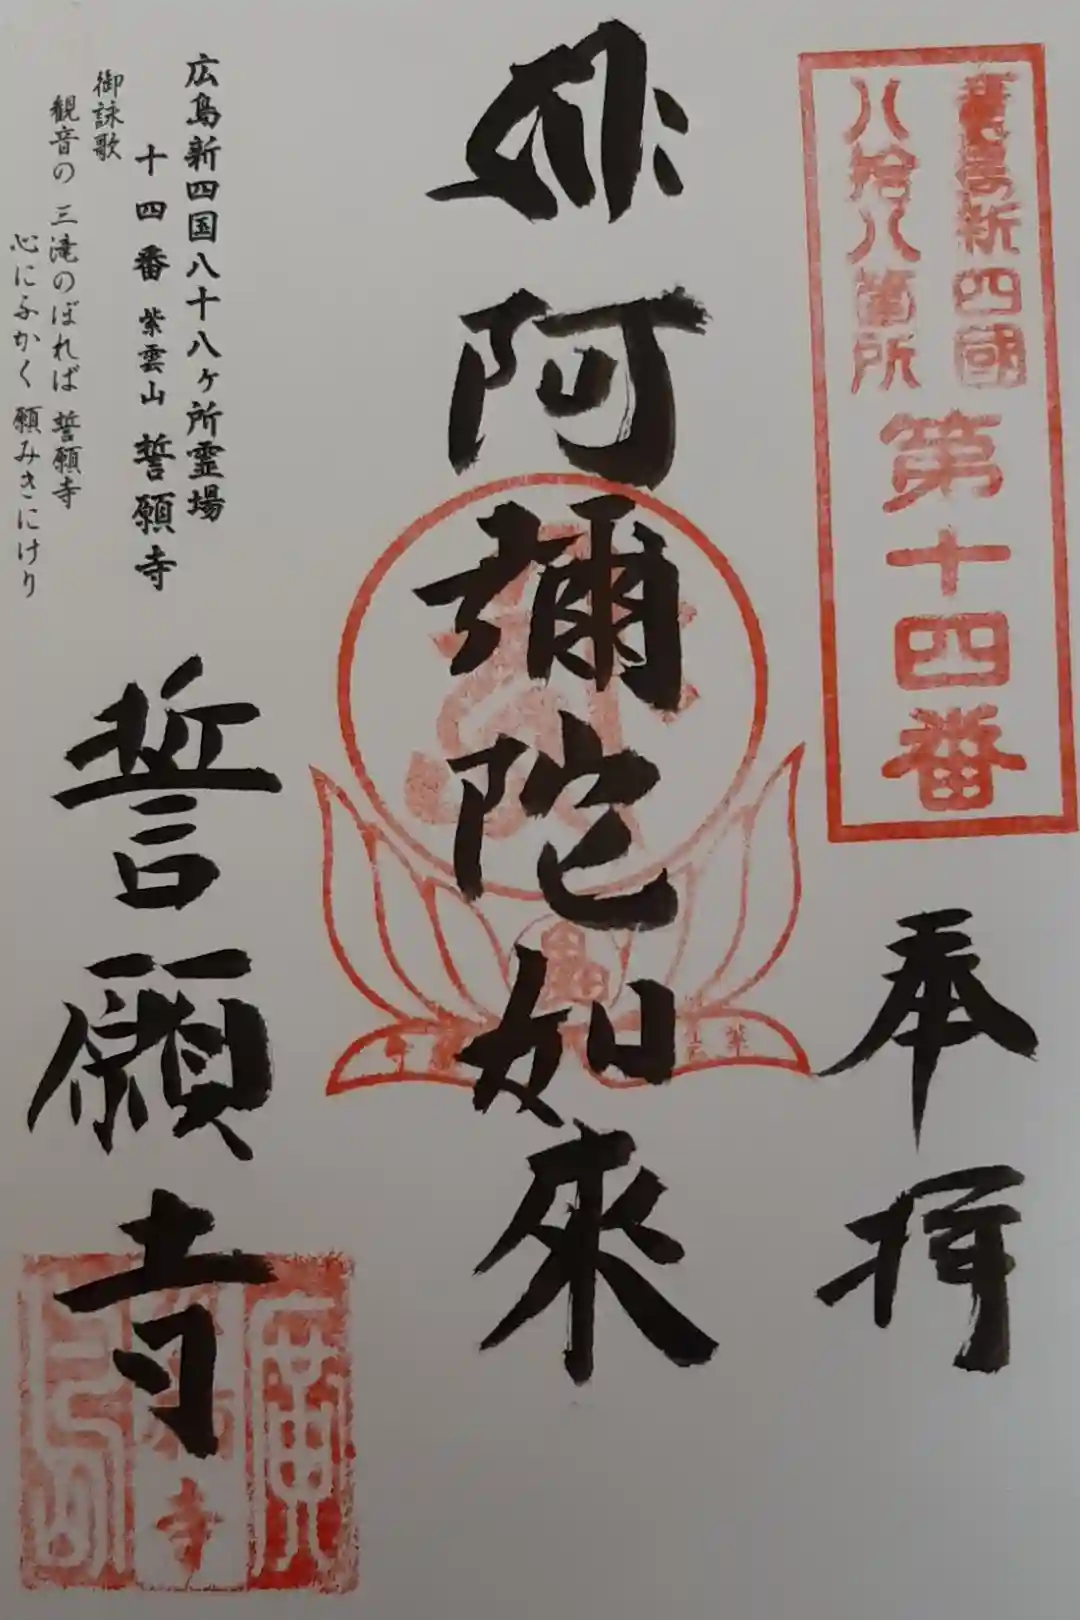 新四國
八拾八箇所
第十四番
奉拝
阿彌陀如來
広島新四国八十八ヶ所霊場
十四番 紫雲山 誓願寺
御詠歌
観音の 三滝のぼれば 誓願寺
心にふかく 願みきにけり
誓願寺
廣
寺